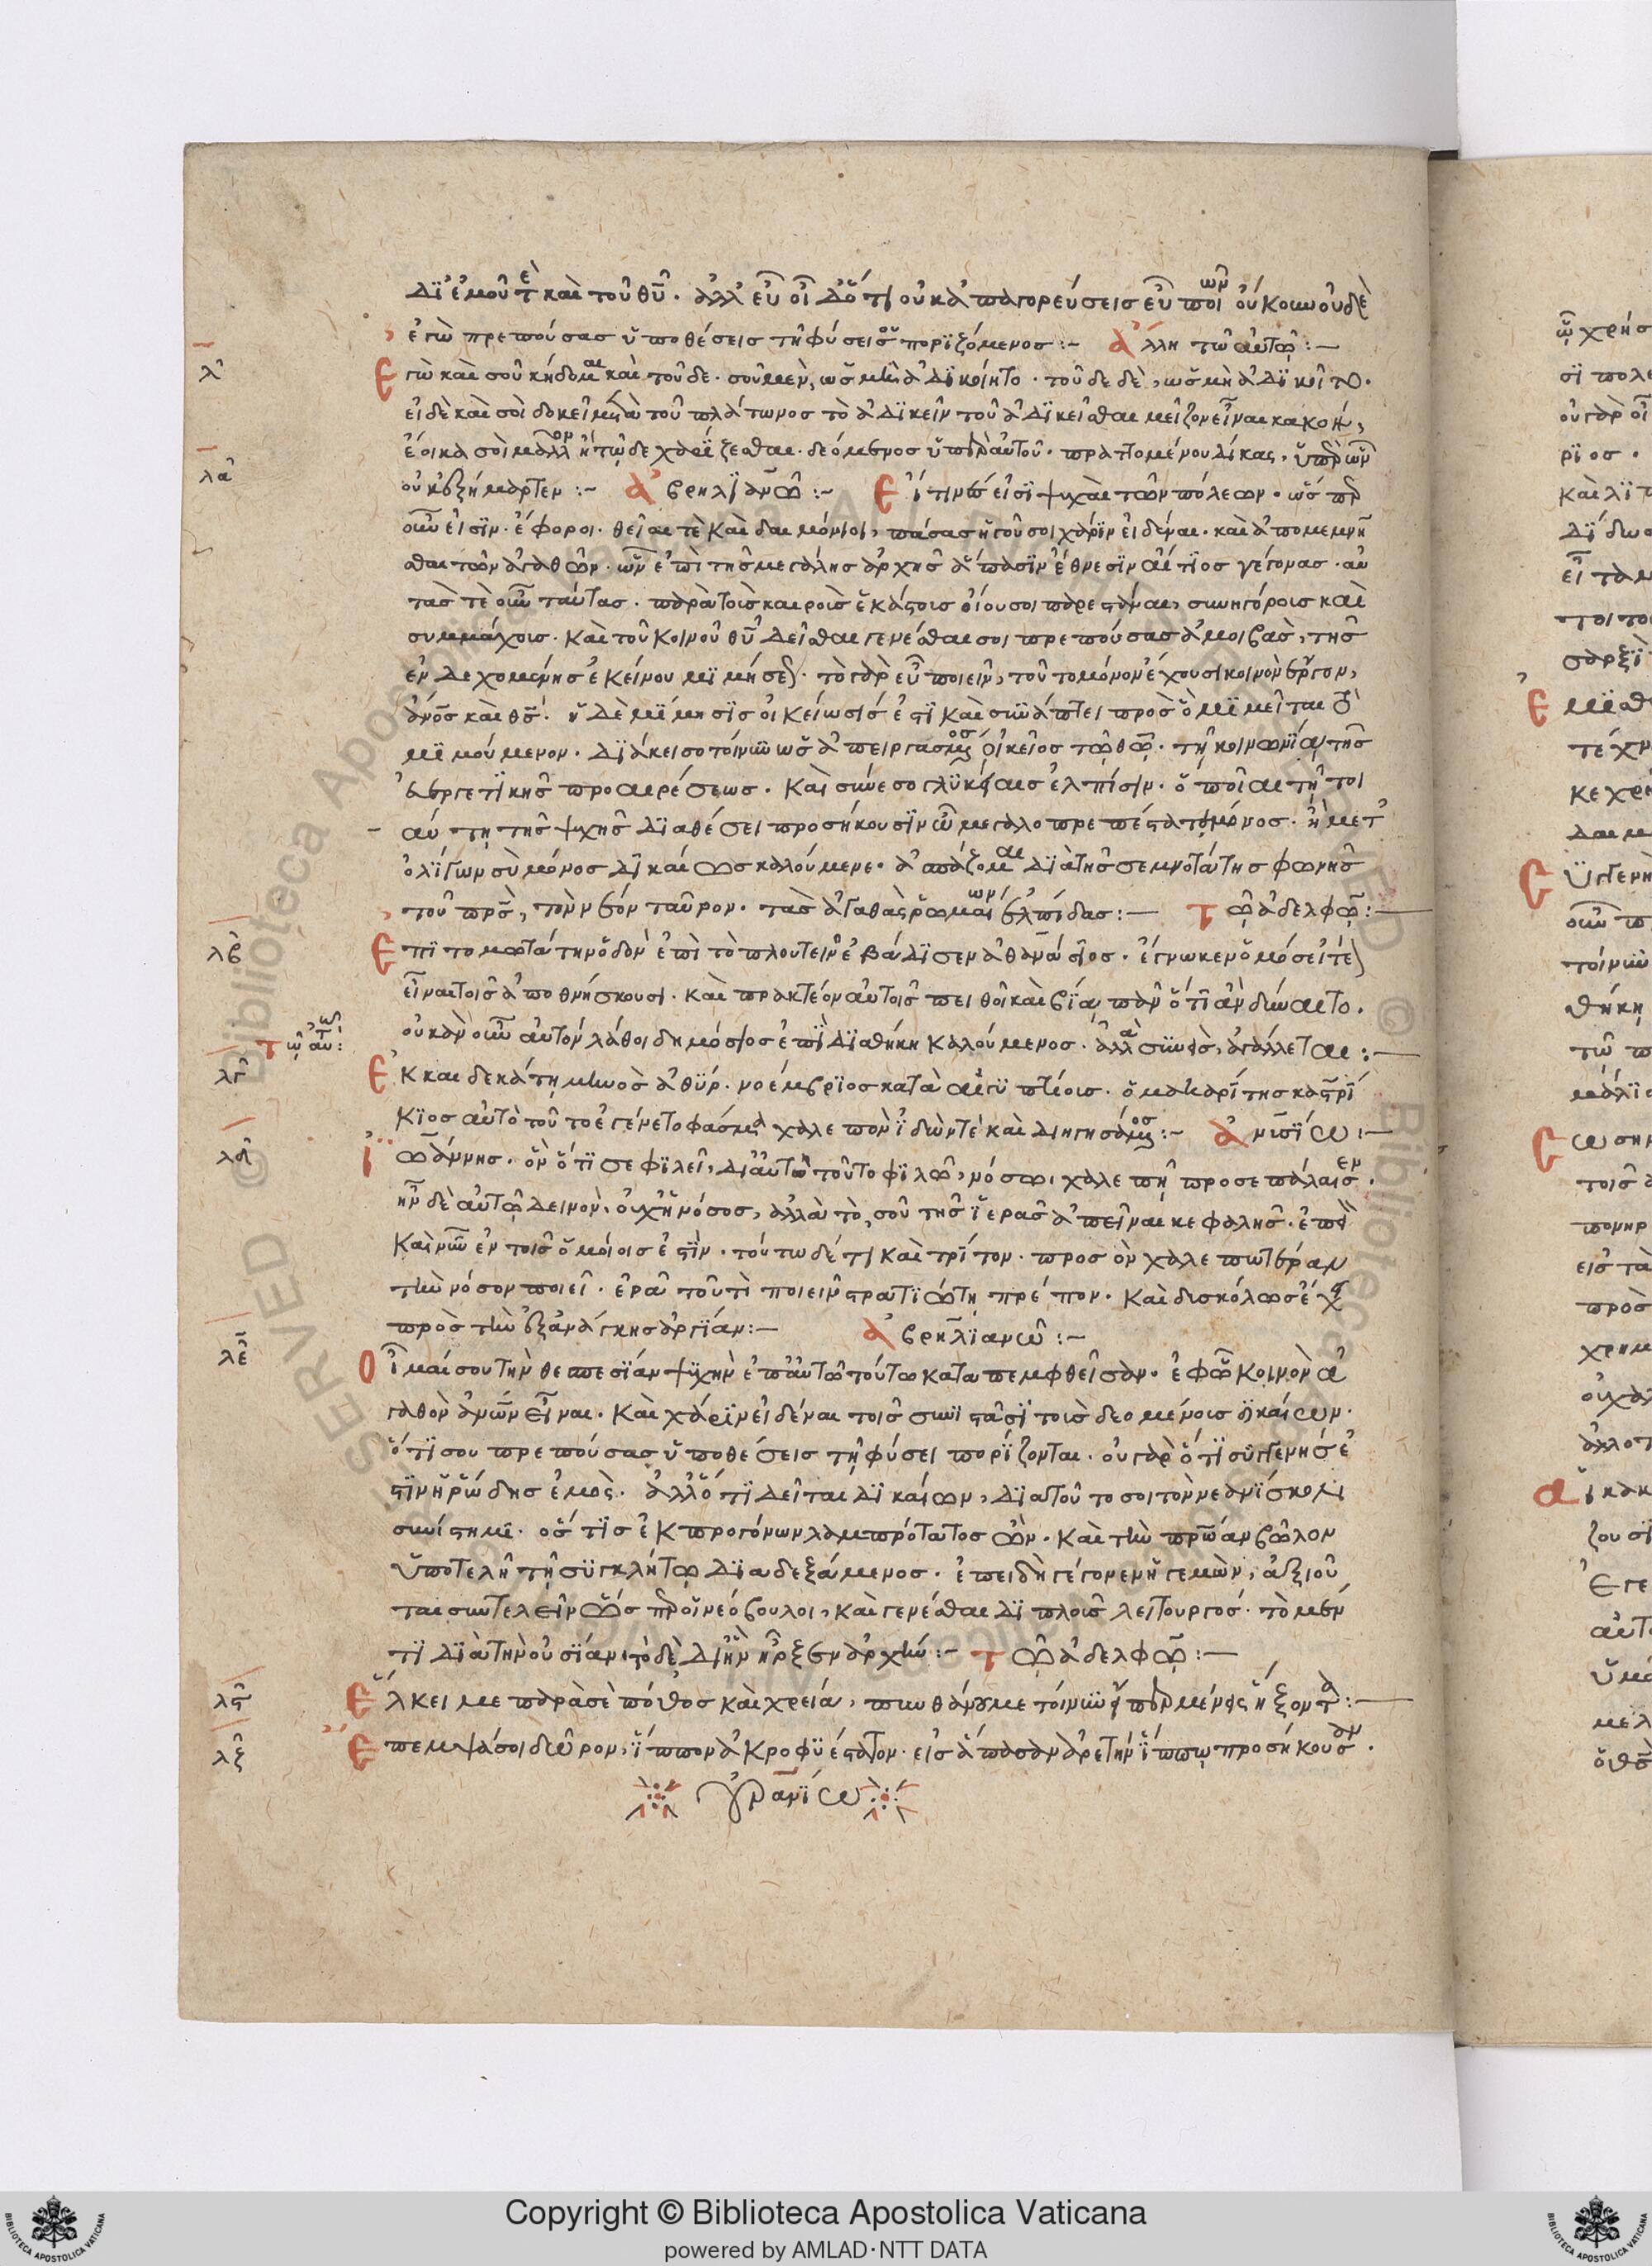 δι' ἐμοῦ τὲ καὶ τοῦ θυ. ἀλλ' εὖ οἶδ' ὅτι οὐκ ἀπαγορεύσεις εὖ ποιῶν οὔκουν οὐδὲ
ἐγὼ πρεπούσας ὑποθέσεις τῆ φύσει σου ποριζόμενος :- ἄλλη τῶ αὐτῶ :-
λ Ἐγὼ καὶ σοῦ κήδομαι καὶ τοῦδε. σοῦ μὲν, ὡς μὴ ἀδικοίη τὸ. τοῦδε δὲ, ὡς μὴ ἀδικοῖτο.
εἰ δὲ καὶ σοὶ δοκεῖ μετὰ τοῦ πλάτωνος τὸ ἀδικεῖν τοῦ ἀδικεῖσθαι μεῖζον εἶναι κακὸν,
λα ἔοικα σοὶ μᾶλλον ἢ τῶδε χαρίζεσθαι. δεόμενος ὑπὲρ αὐτοῦ. πραττομένου δίκας, ὑπὲρ ὧν
οὐκ ἐξήμαρτεν :- αὐρηλιανῶ :- Εἴ τινες εἰσὶ ψυχαὶ τῶν πόλεων. ὥσπερ
οὖν εἰσὶν. ἔφοροι. θεῖαι τὲ καὶ δαιμόνιοι, πάσας ἡγοῦ σοι χάριν εἰδέναι. καὶ ἀπομεμνῆ
σθαι τῶν ἀγαθῶν. ὧν ἐπὶ τῆς μεγάλης ἀρχῆς ἅπασιν ἔθνεσιν αἴτιος γέγονας. αὐ
τὰς τὲ οὖν ταύτας. παρὰ τοῖς καιροῖς ἑκάστοις οἴου σοι παρεστάναι, συνηγόροις καὶ
συμμάχοις. καὶ τοῦ κοινοῦ θυ δεῖσθαι γενέσθαι σοι πρεπούσας ἀμοιβὰς, τῆς
ἐνδεχομένης ἐκείνου μιμήσεως. τὸ γὰρ εὖ ποιεῖν, τοῦτο μόνον ἔχουσι κοινὸν ἔργον,
ἄνος καὶ θς. ἡ δὲ μίμησις οἰκείωσίς ἐστι καὶ συνάπτει πρὸς ὃ μιμεῖται τὸ
μιμούμενον. διάκεισο τοίνυν ὡς ἀπειργασμένος οἰκεῖος τῶ θῶ. τῆ κοινωνίᾳ τῆς
εὐεργετικῆς προαιρέσεως. καὶ σύνεσο γλυκείαις ἐλπίσιν. ὁποῖαι τῆ τοι
αύτη τῆς ψυχῆς διαθέσει προσήκουσιν ὦ μεγαλοπρεπέστατε μόνος. ἢ μετ'
ὀλίγων σὺ μόνος δικαίως καλούμενε. ἀσπάζομαι διὰ τῆς σεμνοτάτης φωνῆς
τοῦ πρς, τὸν νέον ταῦρον. τὰς ἀγαθὰς ῥωμαίων ἐλπίδας :- τῶ ἀδελφῶ :-
λβ Ἐπιτομωτάτην ὁδὸν ἐπὶ τὸ πλουτεῖν ἐβάδισεν ἀθανάσιος. ἔγνωκεν ὁμόσε ἰτέον
εἶναι τοῖς ἀποθνήσκουσι. καὶ πρακτέον αὐτοῖς πειθοῖ καὶ βίᾳ πᾶν ὅτι ἂν δύναιτο.
οὐκ ἂν οὖν αὐτὸν λάθοι δημόσιος ἐπὶ διαθήκη καλούμενος. ἀλλὰ συνεὶς, ἀγάλλεται :-
τῶ αὐτῶ :
λγ Ἑκκαιδεκάτη μηνὸς ἀθύρ. νοέμβριος κατὰ αἰγυπτίοις. ὁ μακαρίτης καστρί
κιος αὐτὸ τοῦτο ἐγένετο φάσμα χαλεπὸν ἰδών τὲ καὶ διηγησάμενος :- ἀνισίω :-
λδ Ἰωάννης. ὃν ὅτι σε φιλεῖ, δι' αὐτὸ τοῦτο φιλῶ, νόσω χαλεπῆ προσεπάλαισεν.
ἦν δὲ αὐτῶ δεινὸν, οὐχ ἡ νόσος, ἀλλὰ τὸ, σοῦ τῆς ἱερᾶς ἀπεῖναι κεφαλῆς. ἐπεὶ
καὶ νῦν ἐν τοῖς ὁμοίοις ἐστὶν. τούτω δέ τι καὶ τρίτον. πρὸς ὃν χαλεπωτέραν
τὴν νόσον ποιεῖ. ἐρᾷ τοῦ τὶ ποιεῖν στρατιώτη πρέπον. καὶ δυσκόλως ἔχει
πρὸς τὴν ἐξ ἀνάγκης ἀργίαν :- αὐρηλιανῶ :-
λε Οἶμαί σου τὴν θεσπεσίαν ψυχὴν ἐπ' αὐτῶ τούτω καταπεμφθεῖσαν. ἐφ' ὧ κοινὸν ἀ
γαθὸν ἀνων εἶναι. καὶ χάριν εἰδέναι τοῖς συνιστᾶσι τοῖς δεομένοις δικαίων.
ὅτι σου πρεπούσας ὑποθέσεις τῆ φύσει πορίζονται. οὐ γὰρ ὅτι συγγενής ἐ
στιν ἡρώδης ἐμὸς. ἀλλ' ὅτι δεῖται δικαίων, διὰ τοῦτό σοι τὸν νεανίσκον
συνίστημι. ὅς τις ἐκ προγόνων λαμπρότατος ὢν. καὶ τὴν πρώαν βῶλον
ὑποτελῆ τῆ συγκλήτω διαδεξάμενος. ἐπειδὴ γέγονεν ἡγεμὼν, ἀξιοῦ
ται συντελεῖν ὥσπερ οἱ νεόβουλοι, καὶ γενέσθαι διπλοῖς λειτουργός. τὸ μέν
τι διὰ τὴν οὐσίαν, τὸ δὲ δι' ἣν ἦρξεν ἀρχὴν :- τῶ ἀδελφῶ :-
λϛ Ἕλκει με παρὰ σὲ πόθος καὶ χρεία, πυνθάνομαι τοίνυν εἰ περιμένεις ἥξοντα :-
λζ Ἔπεμψά σοι δῶρον, ἵππον ἀκροφυέστατον. εἰς ἅπασαν ἀρετὴν ἵππω προσήκουσαν.
οὐρανίω :